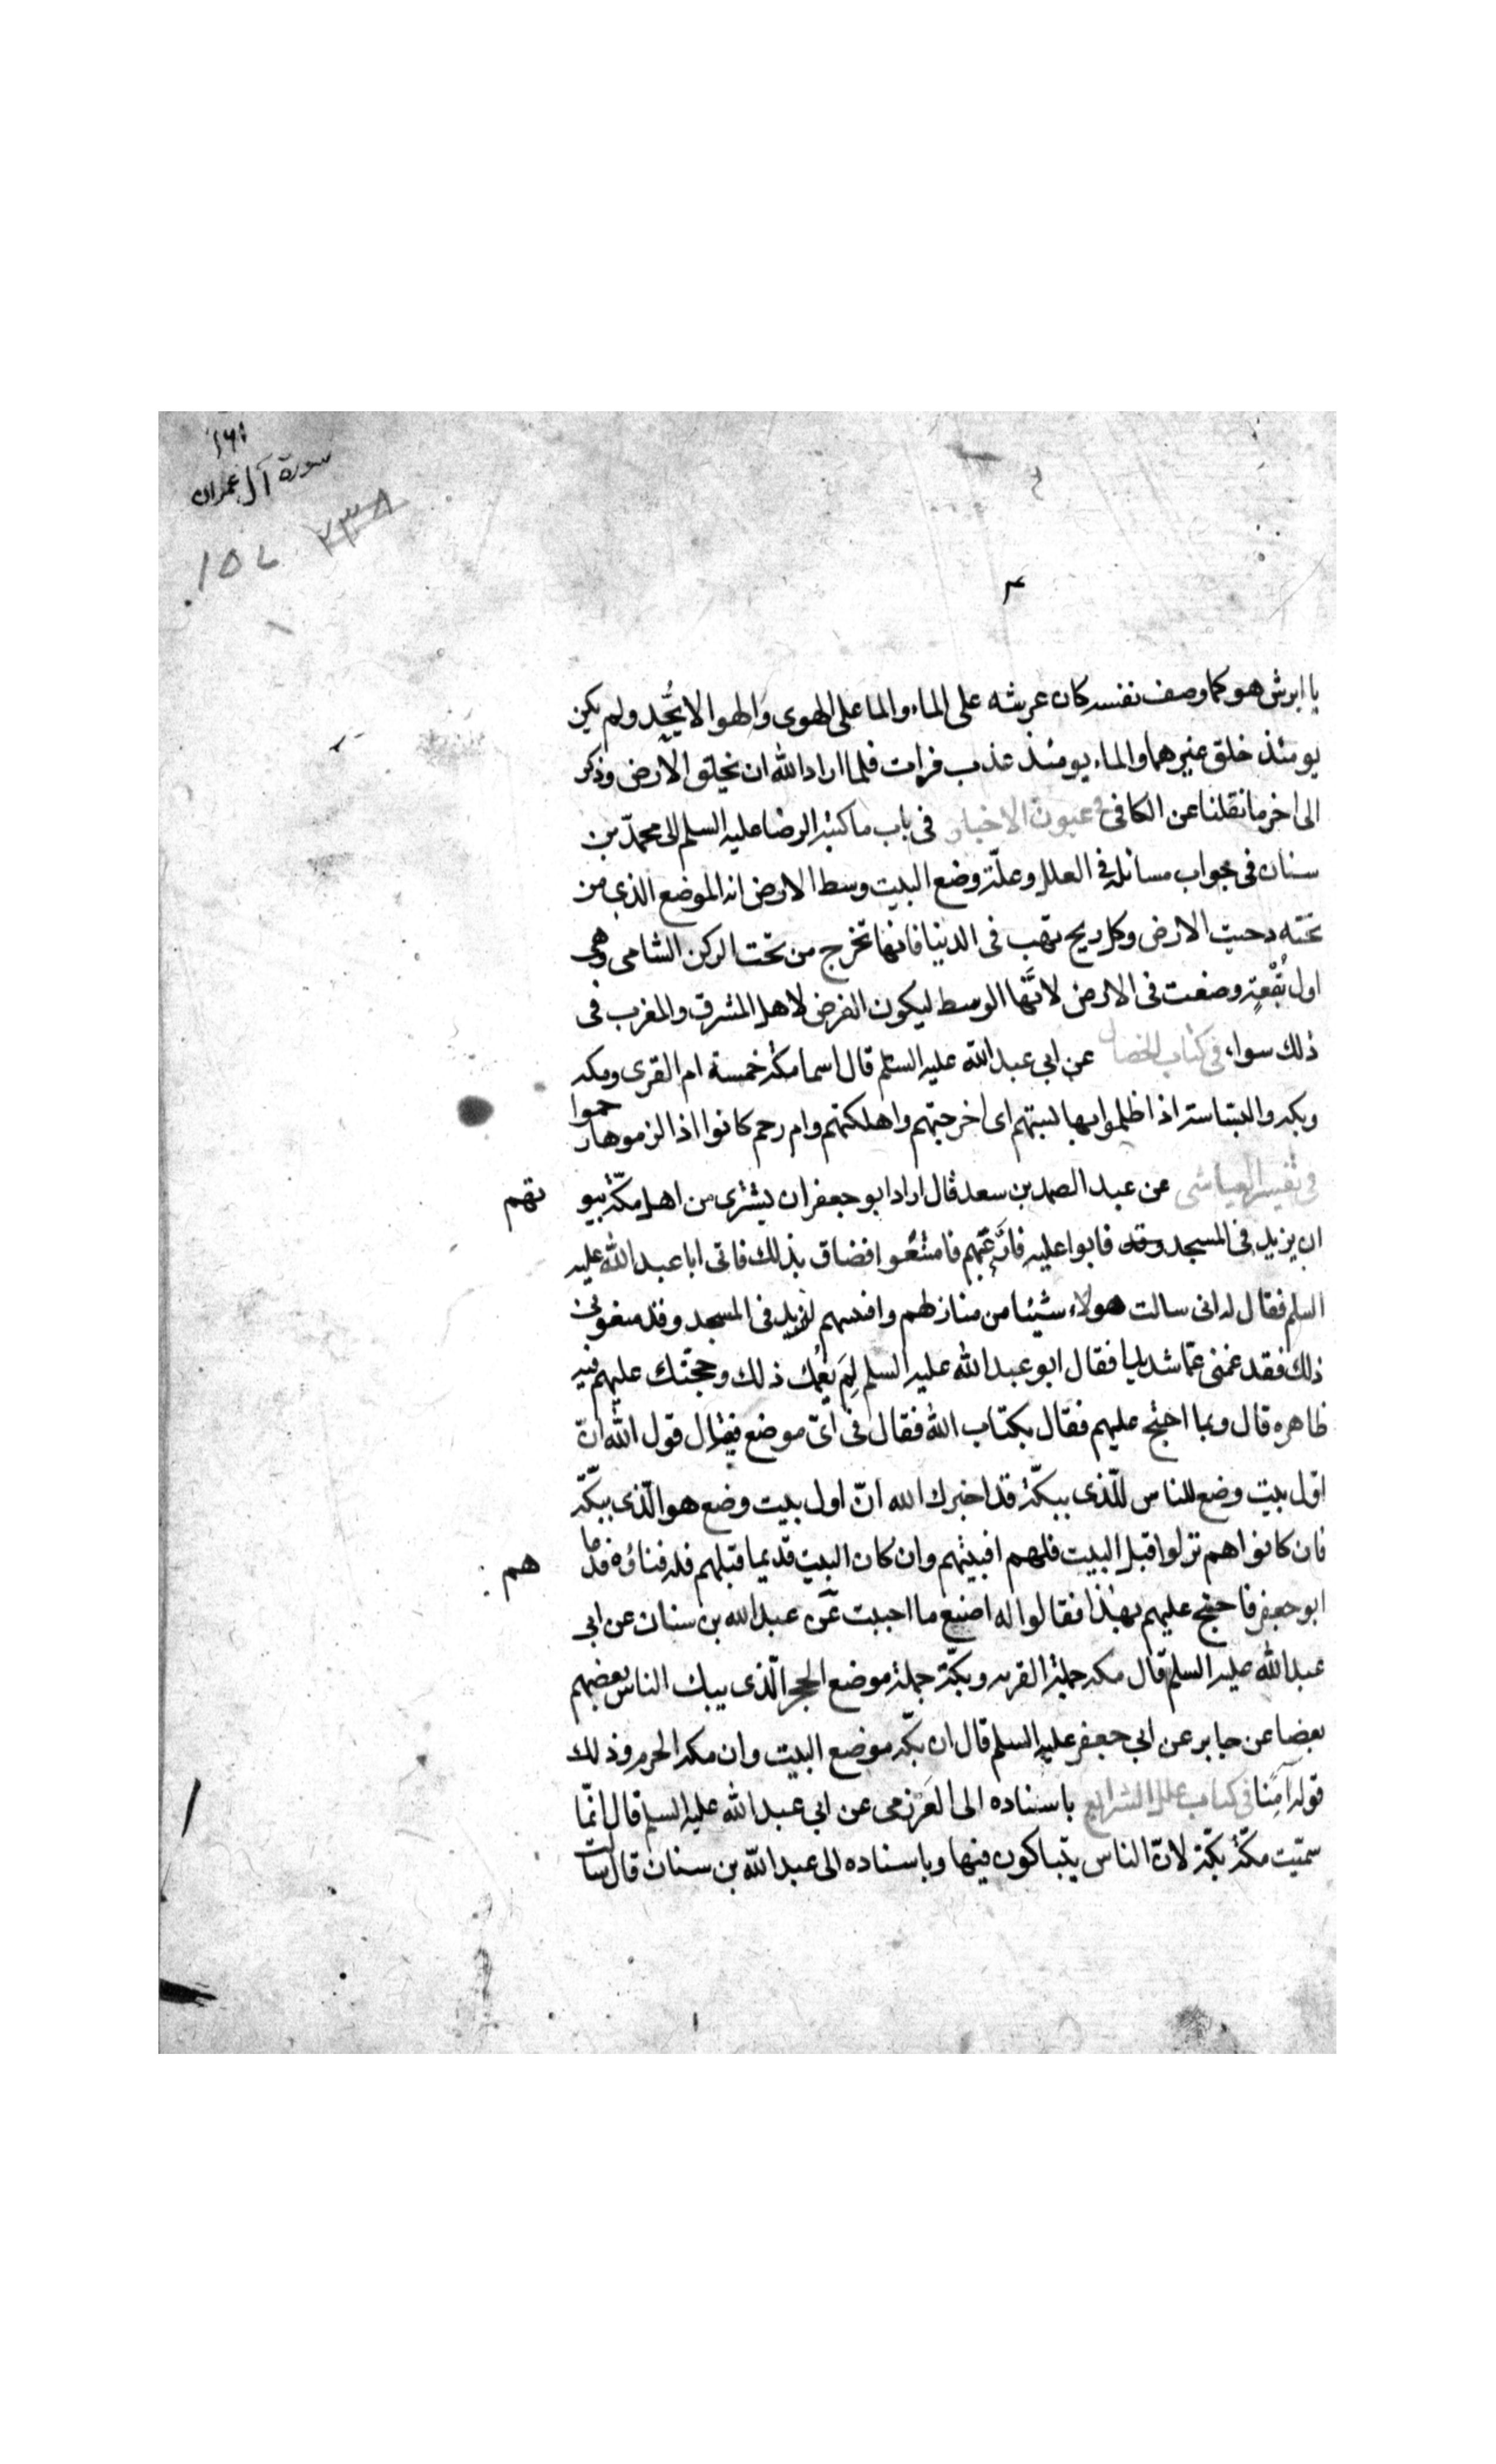 ١٦١
سورة آل عمران
٢٣٨
١٥٧
يا ابرش هو كما وصف نفسه كان عرشه على الماء والما على الهوى والهوا لا يُحَد ولم يكن
يومئذ خلق غيرهما والماء يومئذ عذب فرات فلما اراد الله ان يخلق الارض وذكر
الى اخر ما نقلنا عن الكافى فى عيون الاخبار فى باب ما كتبه الرضا عليه السلم الى محمّد بن
سنان فى جواب مسائله فى العلل وعلّة وضع البيت وسط الارض انه الموضع الذى من
تحته دحيت الارض وكل ريح تهب فى الدنيا فانها تخرج من تحت الركن الشامى وهى
اول بُقْعةٍ وضعت فى الارض لانَّها الوسط ليكون الفرض لاهل المشرق والمغرب فى
ذلك سواء فى كتاب الخصال عن ابى عبد الله عليه السلم قال اسما مكة خمسة ام القرى ومكه
وبكه والبساسة اذا ظلموا بها بستهم اى اخرجتهم واهلكتهم وام رحم كانوا اذا لزموها رحموا
فى تفسير العياشى عن عبد الصمد بن سعد قال اراد ابو جعفر ان يشترى من اهل مكّة بيوتهم
ان يزيد فى المسجد وقد فابوا عليه فارغبهم فامتنعوا فضاق بذلك فاتى ابا عبد الله عليه
السلم فقال له انى سالت هولاء شيئا من منازلهم وافنيتهم لنزيد فى المسجد وقد منعونى
ذلك فقد غمنى غمّا شديدا فقال ابو عبد الله عليه السلم لِمَ يغمُك ذلك وحجّتك عليهم فيه
ظاهره قال وبما احتج عليهم فقال بكتاب الله فقال فى اىّ موضع فقال قول الله انّ
اوّل بيت وضع للناس للّذى ببكّة قد اخبرك الله انّ اول بيت وضع هو الّذى ببكّة
فان كانوا هم نزلوا قبل البيت فلهم افنيتهم وان كان البيت قديما قبلهم فله فناؤه فدعاهم
ابو جعفر فاحتج عليهم بهذا فقالوا له اصنع ما احببت عن عبد الله بن سنان عن ابى
عبد الله عليه السلم قال مكه جملة القريه وبكّة جملة موضع الحجر الّذى يبك الناس بعضهم
بعضا عن جابر عن ابى جعفر عليه السلم قال ان بكّه موضع البيت وان مكه الحرم وذلك
قوله آمِنا فى كتاب علل الشرايع باسناده الى العَرزمى عن ابى عبد الله عليه السلم قال انمّا
سميّت مكّة بكّة لانّ الناس يتباكون فيها وباسناده الى عبد اللّه بن سنان قال سالت